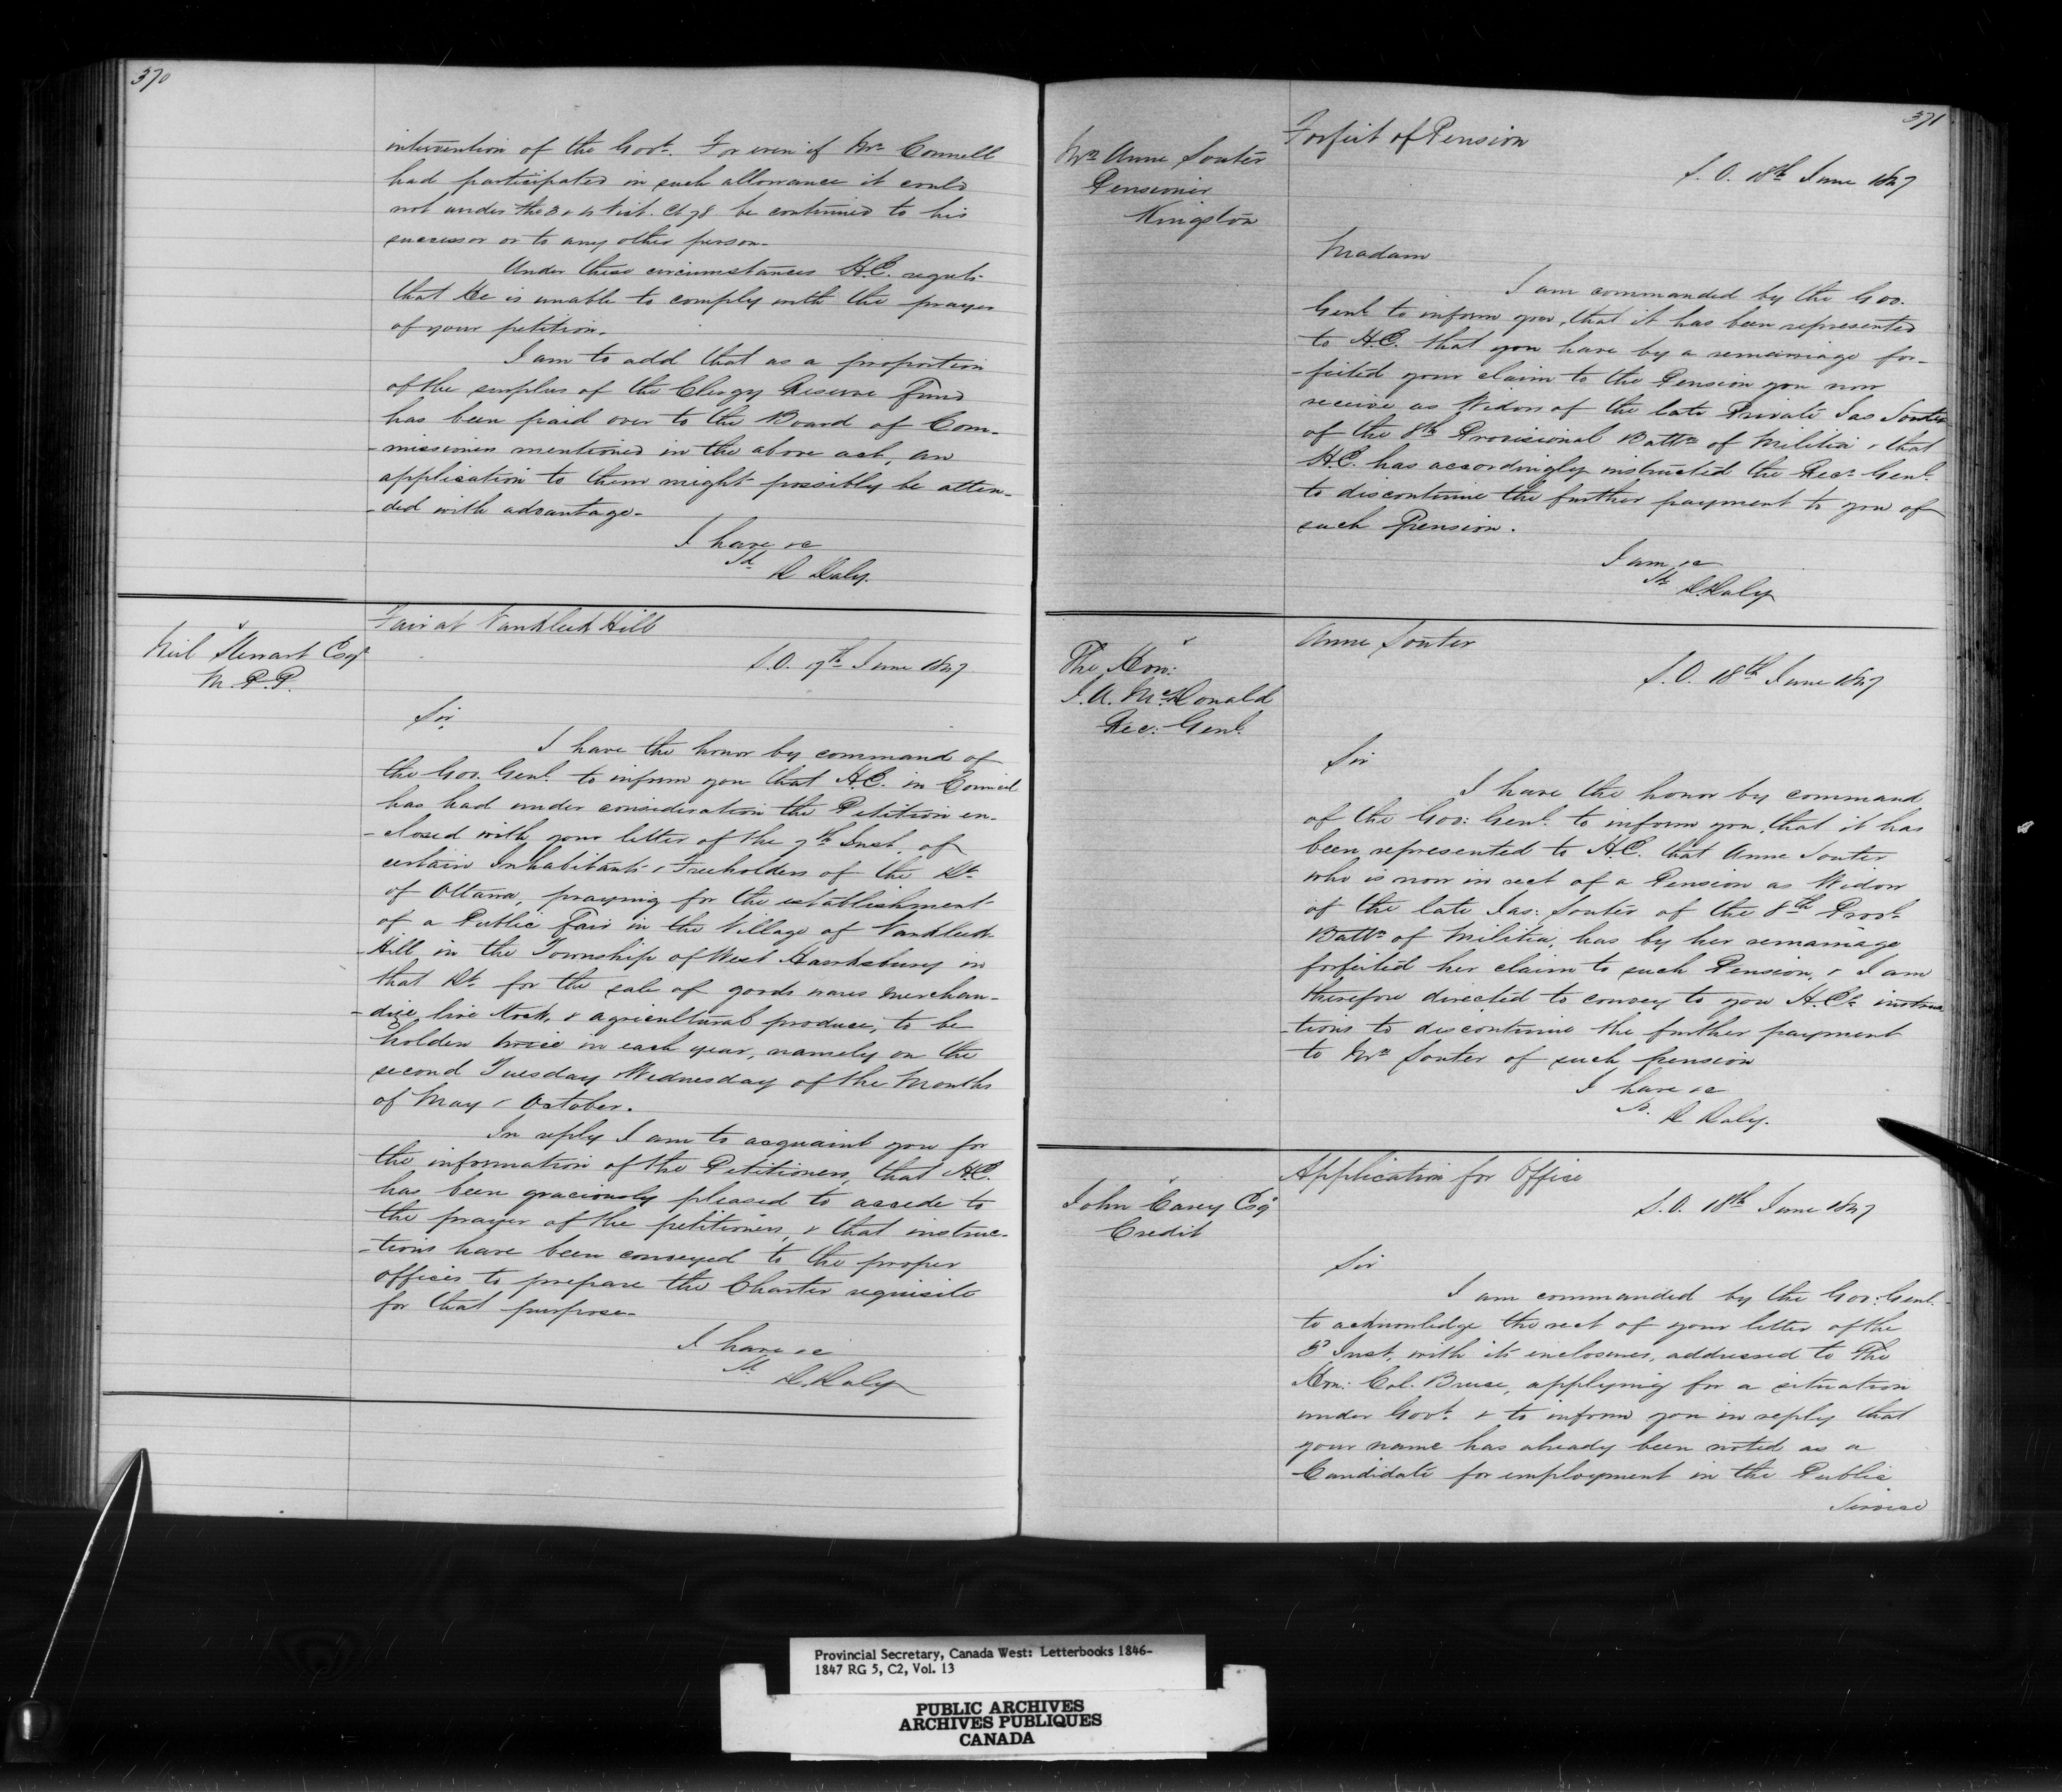 370
intervention of the Govt. For even if Mr Connell
had participated in such allowance it could
not under the 3 & 4 Vict. Ch 78 be continued to his
successor or to any other person.
Under these circumstances H.E. regrets
that He is unable to comply with the prayer
of your petition.
I am to add that as a proportion
of the surplus of the Clergy Reserve Fund
has been paid over to the Board of Com-
-missioners mentioned in the above act, an
application to them might possibly be atten-
-ded with advantage.
I have &c
Sd
D Daly.
Fair at Vankleek Hill
Neil Stewart Esqr
M.P.P.
S.O. 17th June 1847
Sir
I have the honor by command of
the Gov. Genl. to inform you that H.E. in Council
has had under consideration the Petition en-
-closed with your letter of the 7th Inst. of
certain Inhabitants & Freeholders of the Dt.
of Ottawa, praying for the establishment
of a Public Fair in the Village of Vankleek
-Hill in the Township of West Hawksbury in
that Dt. for the sale of goods wares merchan-
-dize, live stock, & agricultural produce, to be
holden twice in each year, namely on the
second Tuesday & Wednesday of the Months
of May & October.
In reply I am to acquaint you for
the information of the Petitioners, that H.E.
has been graciously pleased to accede to
the prayer of the petitioners, & that instruc-
-tions have been conveyed to the proper
officer to prepare the Charter requisite
for that purpose.
I have &c
Sd.
D. Daly
371
Forfeit of Pension
Mrs Anne Souter
Pensioner
Kingston
S.O. 18th June 1847
Madam
I am commanded by the Gov.
Genl. to inform you, that it has been represented
to H.E. that you have by a remarriage for-
-feited your claim to the Pension you now
receive as Widow of the late Private Jas Souter
of the 8th Provisional Battn of Militia & that
H.E. has accordingly instructed the Recr. Genl.
to discontinue the further payment to you of
such Pension.
I am &c
Sd.
D. Daly
Anne Souter
The Hon:
J.A. McDonald
Rec: Genl.
S.O. 18th June 1847
Sir
I have the honor by command
of the Gov: Genl. to inform you, that it has
been represented to H.E. that Anne Souter
who is now in rect of a Pension as Widow
of the late Jas: Souter of the 8th Provl.
Battn of Militia, has by her remarriage
forfeited her claim to such Pension, & I am
therefore directed to convey to you H.E's instruc
-tions to discontinue the further payment
to Mrs Souter of such pension
I have &c
Sd.
D Daly.
Application for Office
John Carey Esqr
Credit
S.O. 18th June 1847
Sir
I am commanded by the Gov: Genl.
to acknowledge the rect of your letter of the
3d Inst, with its inclosures, addressed to The
Hon: Col. Bruce, applying for a situation
under Govt. & to inform you in reply that
your name has already been noted as a
Candidate for employment in the Public
Service
Provincial Secretary, Canada West: Letterbooks 1846-
1847 RG 5, C2, Vol. 13
PUBLIC ARCHIVES
ARCHIVES PUBLIQUES
CANADA